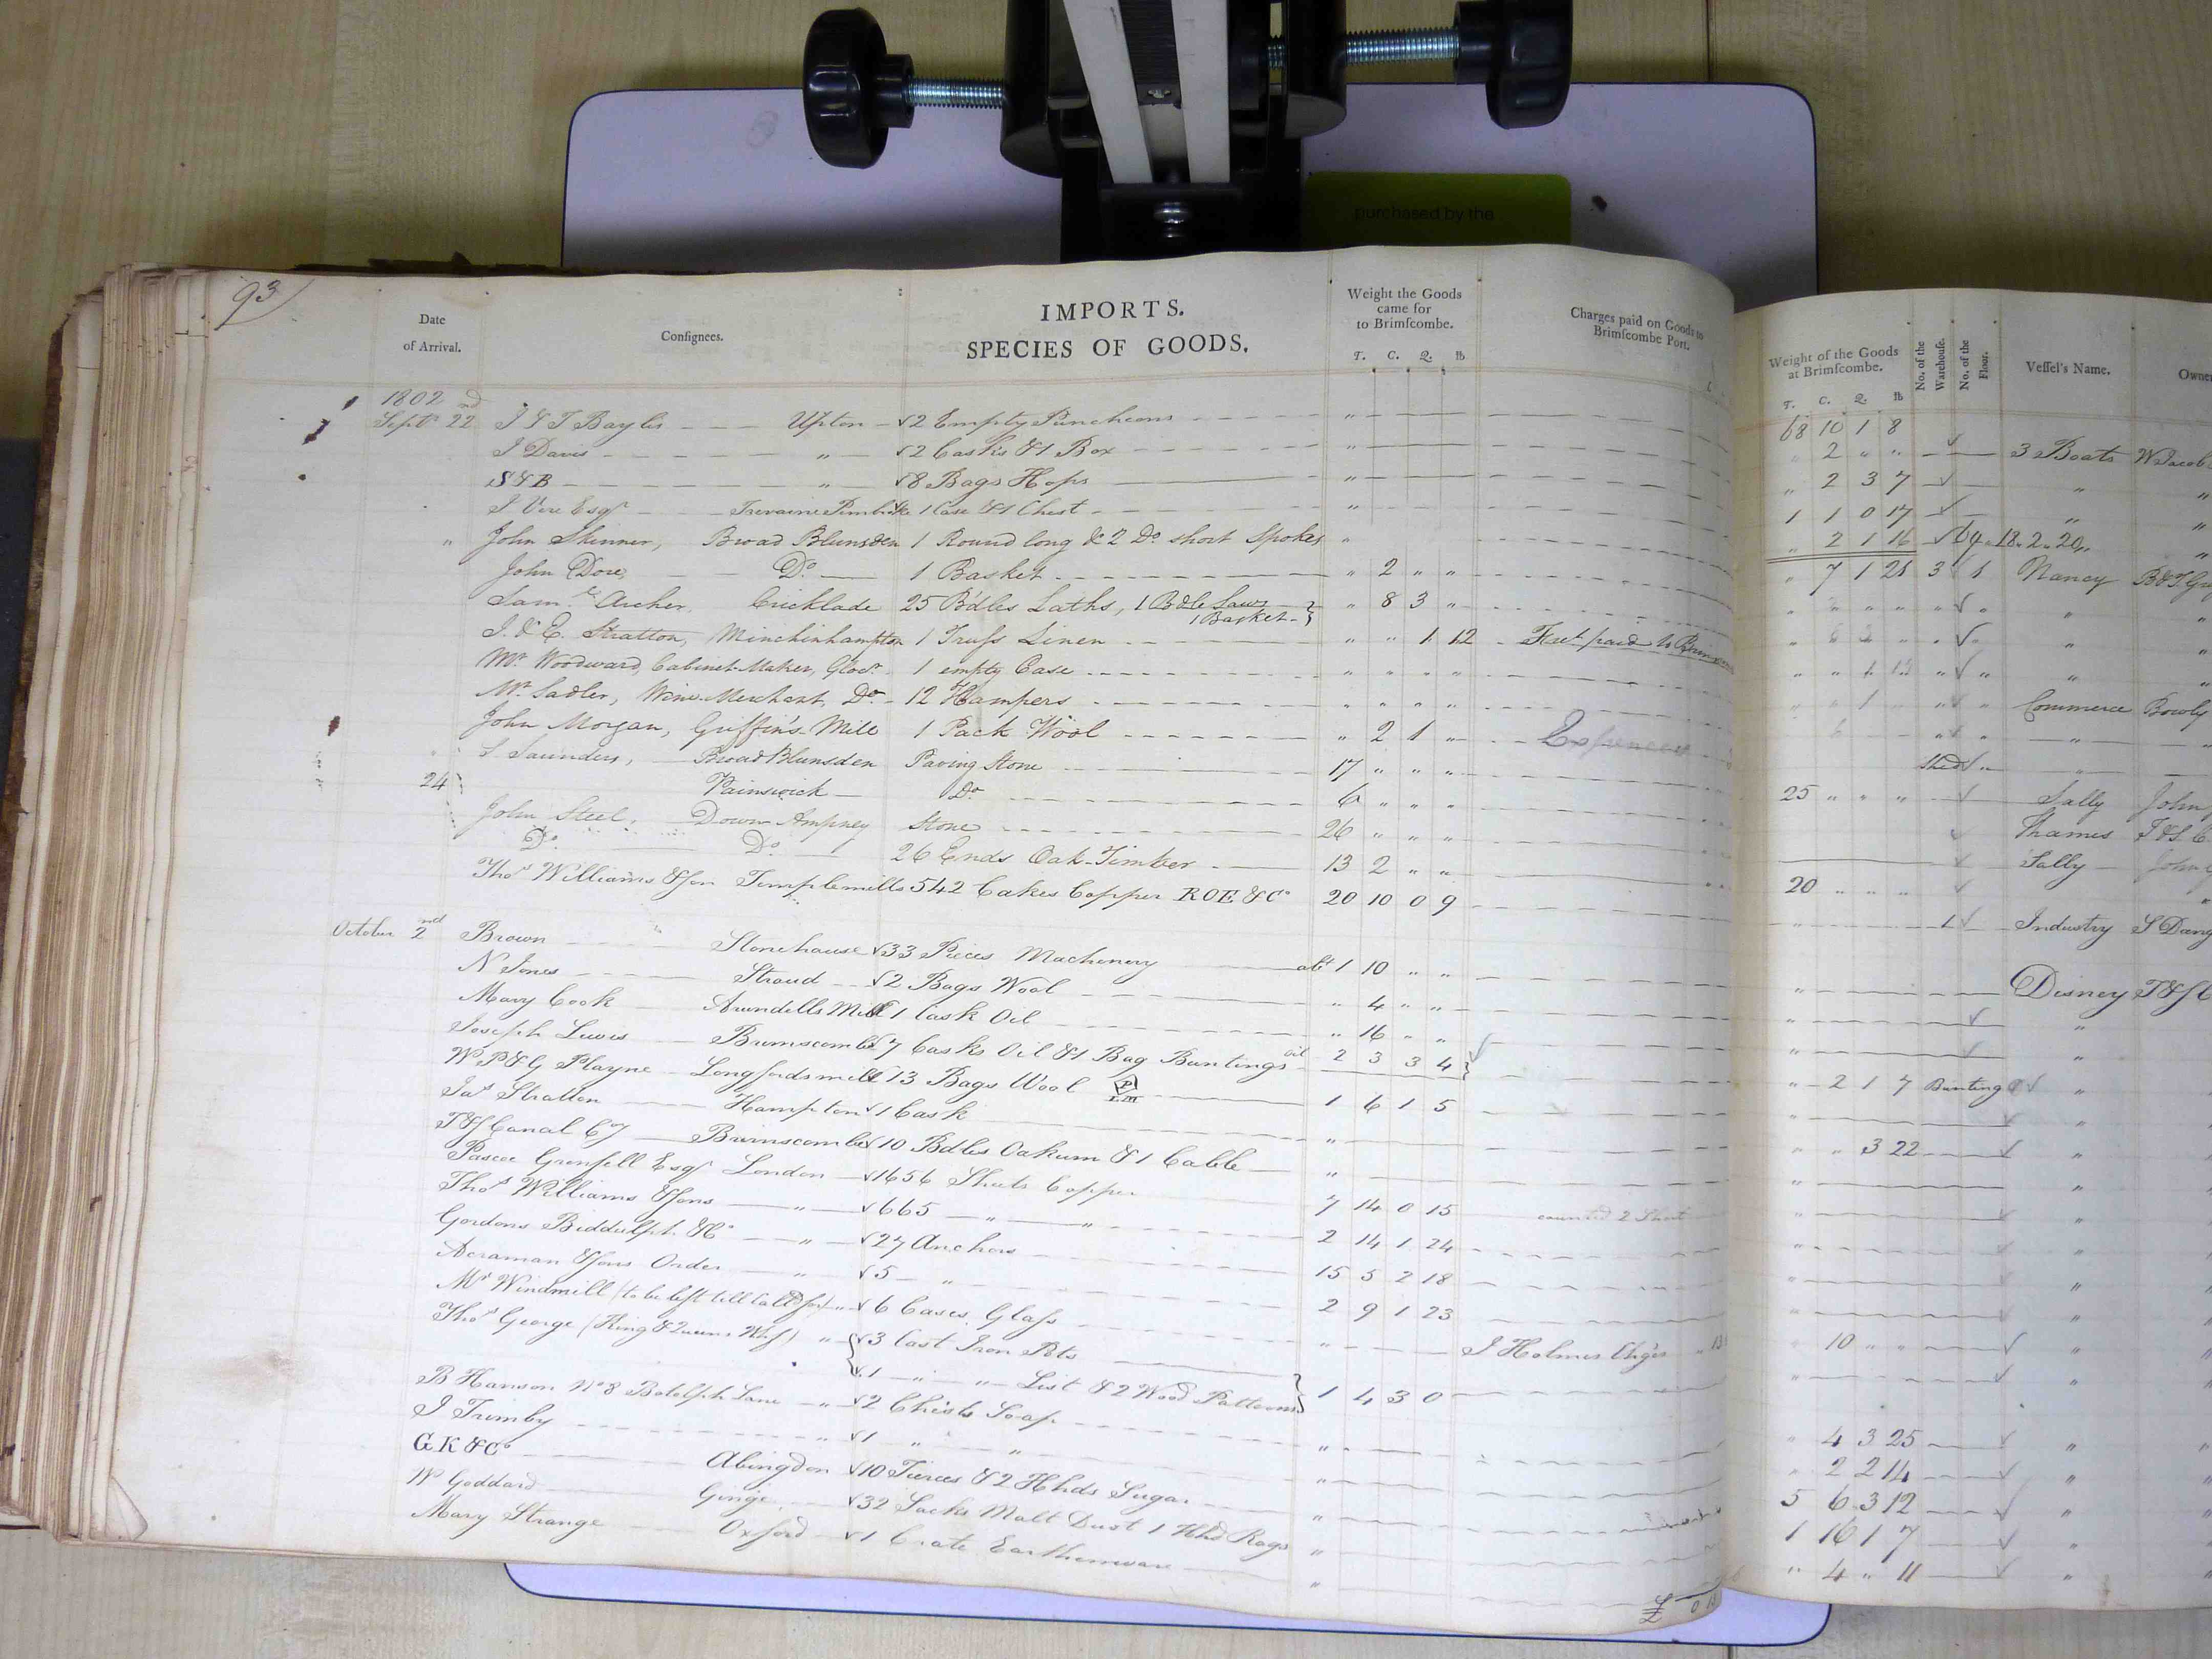 purchased by the
93
Date of Arrival.
Consignees.
IMPORTS.
SPECIES OF GOODS.
Weight the Goods came for to Brimscombe.
T. C. Q. lb
Charges paid on Goods to Brimscombe Port.
Weight of the Goods at Brimscombe.
T. C. Q. lb
No. of the Warehouse.
No. of the Floor.
Vessel's Name.
Owner
1802
68 10 1 8
Septr 22nd J & T Baylis Upton √2 Empty Puncheons " " 2 " " √ 3 Boats W Jacob
J Davis " √2 Casks & 1 Box " " 2 3 7 √ " "
S & B " √8 Bags Hops " 1 1 0 17 √ " "
J Vere Esqr 1 Case & 1 Chest " " 2 1 16 √
" John Skinner, Broad Blunsden 1 Round long & 2 Do short Spokes " " 7 1 21 3 1 Nancy
John Dore, Do 1 Basket " 2 " "
Saml Archer, Cricklade 25 B'dles Laths, 1 Bdle Saws 1 Basket " 8 3 "
J. & E. Stratton, Minchinhampton 1 Truss Linen " " 1 12 Fret paid to
Mr Woodward, Cabinet-Maker, Glocr 1 empty Case " " " " Commerce Bowly
Mr Sadler, Wine Merchant, Do 12 Hampers " " " "
John Morgan, Griffin's Mill 1 Pack Wool " 2 1 " Shed √
S. Saunders, Broad Blunsden Paving Stone 17 " " " 25 " " " √ Sally John
24 Painswick Do 6 " " " √ Thames
John Steel, Down Ampney Stone 26 " " " √ Sally John
Do Do 26 Ends Oak-Timber 13 2 " " 20 " " " √
Thos Williams & Son Templemills 542 Cakes Copper ROE & Co 20 10 0 9 1 √ Industry
October 2nd Brown Stonehouse √33 Pieces Machinery abt 1 10 " " Disney
N Jones Stroud √2 Bags Wool " 4 " " √ "
Mary Cook Arundells Mill √1 Cask Oil " 16 " " √ "
Joseph Lewis Brimscombe √7 Casks Oil & 1 Bag Buntings Oil 2 3 3 4 √ " 2 1 7 Bunting √ "
W P & G Playne Longfordsmill √13 Bags Wool 1 6 1 5
Jas Stratton Hampton √1 Cask " " " 3 22 √ "
T & S Canal Coy Brimscombe √10 Bdles Oakum & 1 Cable "
Pascoe Grenfell Esqr London √1656 Sheets Copper 7 14 0 15 counted 2 Short
Thos Williams & Sons " √665 " " 2 14 1 24
Gordons Biddulph & Co " √27 Anchors 15 5 2 18
Acraman & Sons Order " √5 " 2 9 1 23
Mr Windmill (to be left till Called for) " √6 Cases Glass " J Holmes Chges 10 " " √ "
Thos George (King & Queens Whf) " √3 Cast Iron Pots
√1 " " List & 2 Wood Patterns 1 4 3 0
B Hanson No 8 Botolph Lane " √2 Chests Soap " " 4 3 25 √ "
J Trimby " √1 " " " " 2 2 14 √ "
GK & Co Abingdon √10 Tierces & 2 Hhds Sugar " 5 6 3 12 √ "
W Goddard Ginge √32 Sacks Malt Dust 1 Hhd Rags " 1 16 1 7 √ "
Mary Strange Oxford √1 Crate Earthenware " " 4 " 11 √ "
£